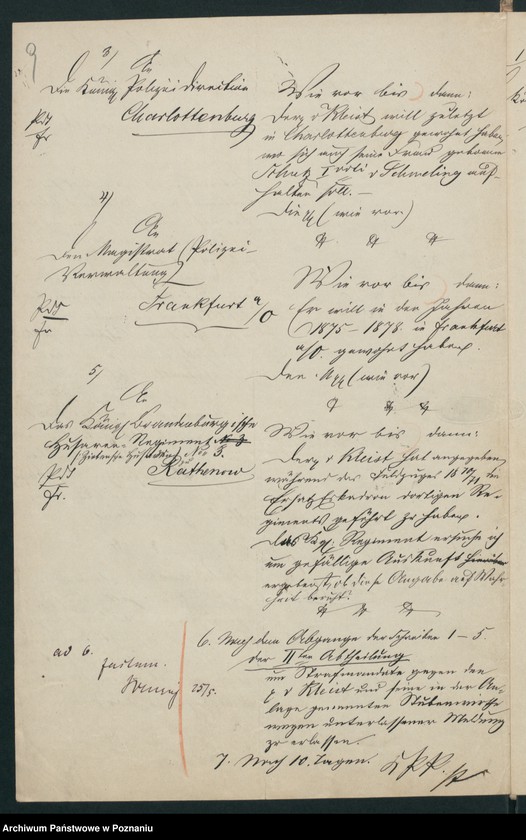 9
3)
An
die Königl. Polizei Direktion
Charlottenburg
Pdt
fr.
Wie vor bis dann:
Der p v Kleist will zuletzt
in Charlottenburg gewohnt haben,
wo sich auch seine Frau geborene
v Schmeling auf-
halten soll. —
Die (wie vor)
4)
An
den Magistrat (Polizei-
Verwaltung)
Frankfurt a/O
Pdt
fr.
Wie vor bis dann:
Er will in den Jahren
1875–1878 in Frankfurt
a/O. gewohnt haben.
Den (wie vor)
5)
An
das Königl. Brandenburgische
Husaren-Regiment
(Zietensche Husaren) No 3.
Rathenow
Pdt
fr.
Wie vor bis dann:
Der p v Kleist hat angegeben
während des Feldzuges 1870/71 die
Ersatz Eskadron dortigen Re-
giments geführt zu haben.
Das Kgl. Regiment ersuche ich
um gefällige Auskunft
ergebenst, ob diese Angabe auf Wahr-
heit beruht.
ad 6.
25/5.
6. Nach dem Abgange der Schreiben 1–5.
der II ten Abtheilung
um Strafmandate gegen den
p v Kleist und seine in der An-
lage genannten Stubenwirthe
wegen unterlassener Meldung
zu erlassen.
7. Nach 10. Tagen.
K.P.P.
Archiwum Państwowe w Poznaniu